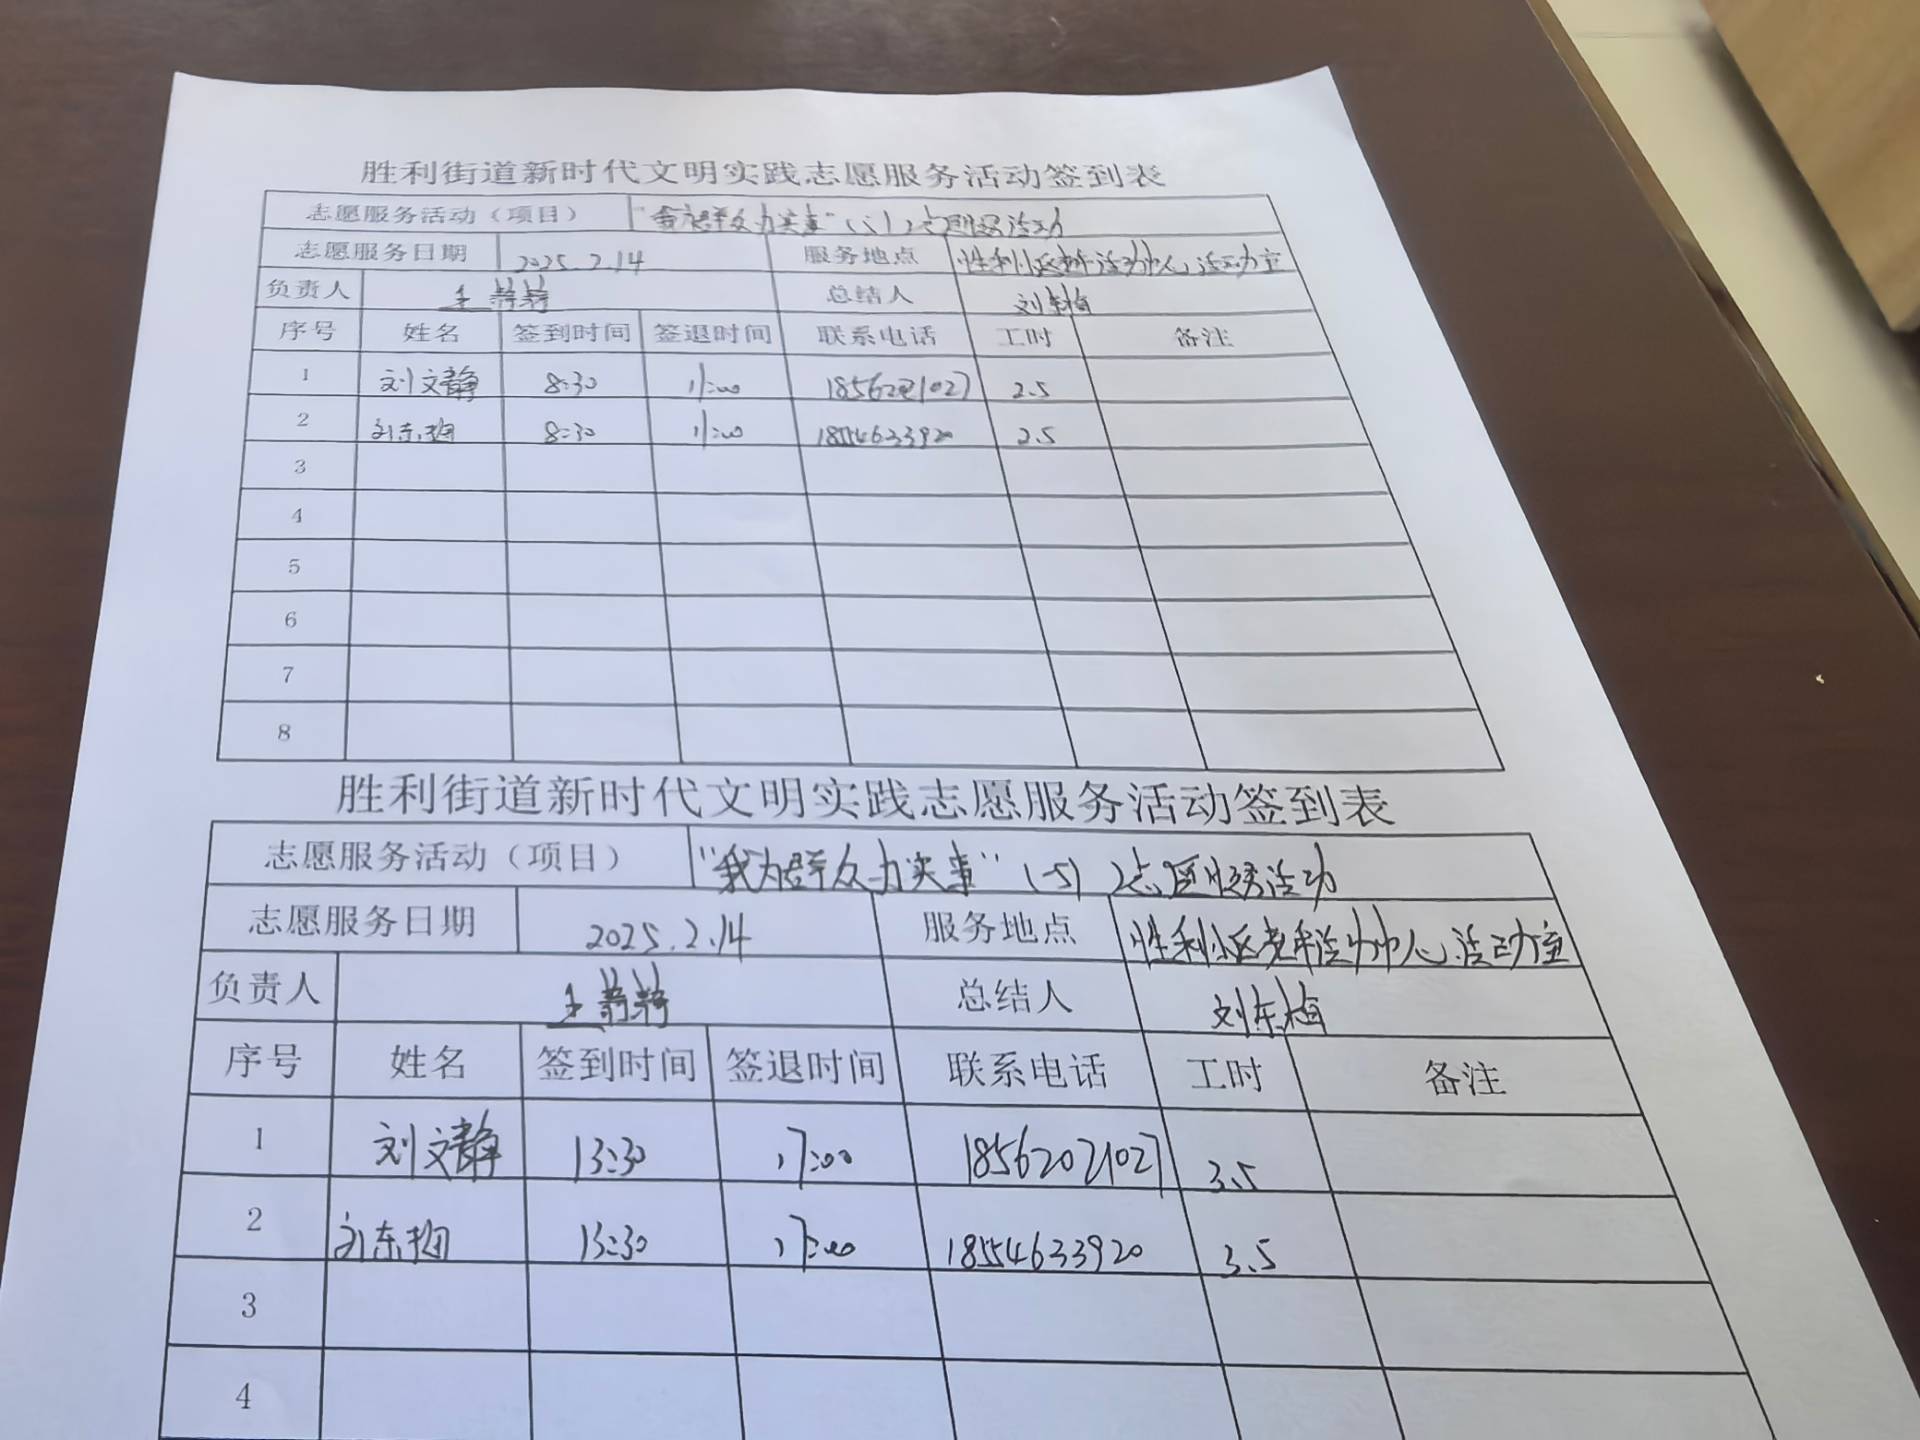 胜利街道新时代文明实践志愿服务活动签到表
志愿服务活动（项目） "我为群众办实事" 活动
志愿服务日期 2025.2.14 服务地点 胜利小区老年活动中心活动室
负责人 王 总结人 刘东梅
序号 姓名 签到时间 签退时间 联系电话 工时 备注
1 刘文静 8:30 11:00 18562021027 2.5
2 刘东梅 8:30 11:00 18554633920 2.5
3
4
5
6
7
8
胜利街道新时代文明实践志愿服务活动签到表
志愿服务活动（项目） "我为群众办实事" 活动
志愿服务日期 2025.2.14 服务地点 胜利小区老年活动中心活动室
负责人 王 总结人 刘东梅
序号 姓名 签到时间 签退时间 联系电话 工时 备注
1 刘文静 13:30 17:00 18562021027 3.5
2 刘东梅 13:30 17:00 18554633920 3.5
3
4